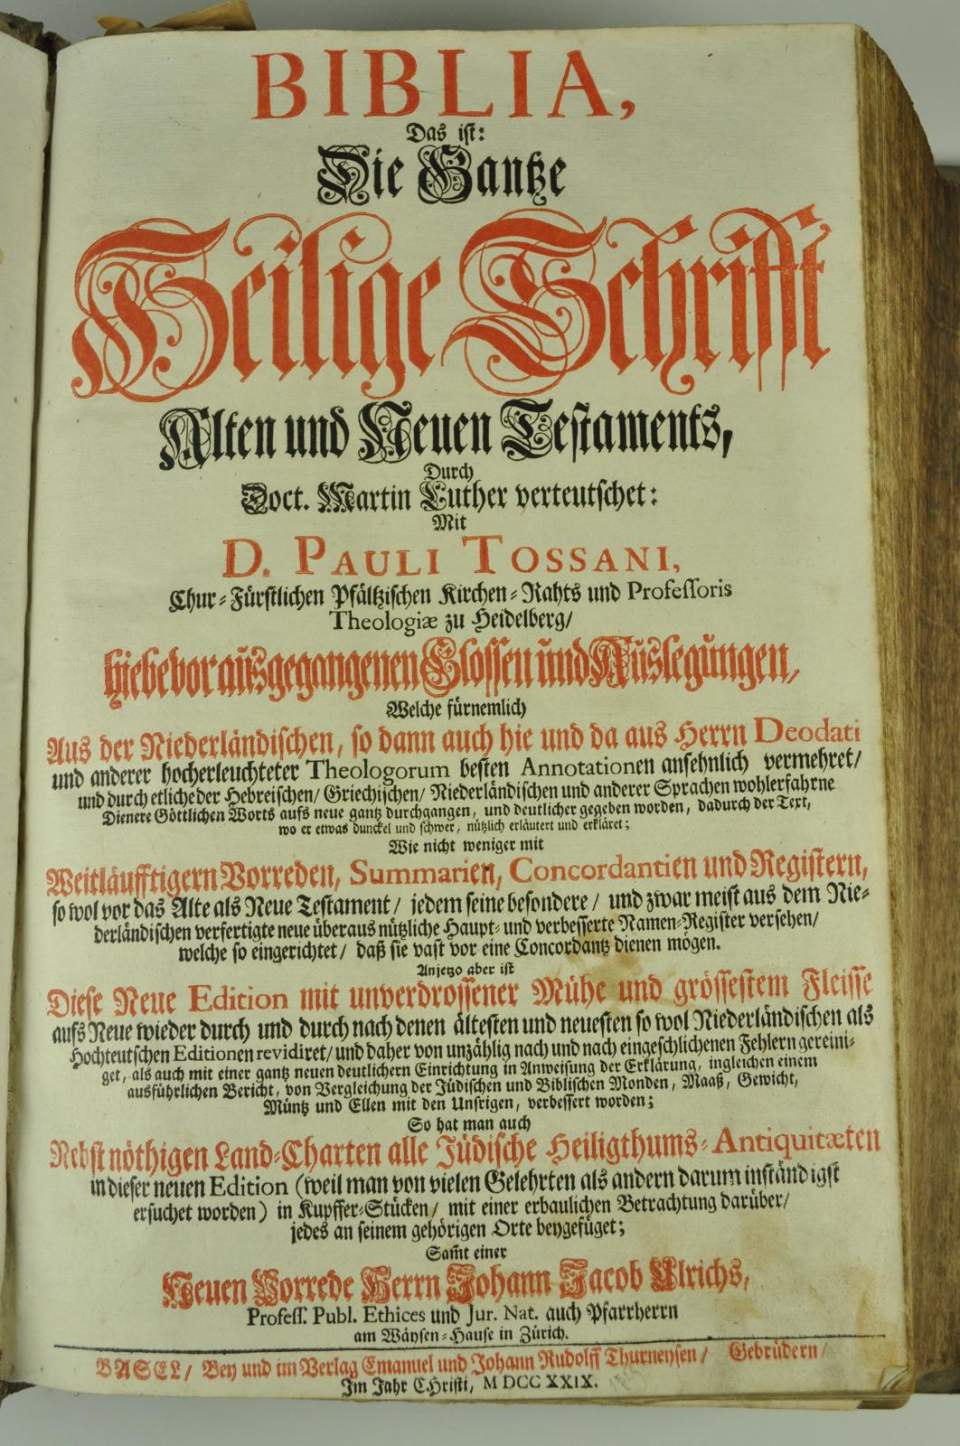 BIBLIA,
Das ist:
Die Gantze
Heilige Schrifft
Alten und Neuen Testaments,
Durch
Doct. Martin Luther verteutschet:
Mit
D. PAULI TOSSANI,
Chur-Fürstlichen Pfältzischen Kirchen-Rahts und Professoris
Theologiæ zu Heidelberg/
hiebevor ausgegangenen Glossen und Auslegungen,
Welche fürnemlich
Aus der Niederländischen, so dann auch hie und da aus Herrn Deodati
und anderer hocherleuchteter Theologorum besten Annotationen ansehnlich vermehret/
und durch etliche der Hebreischen/ Griechischen/ Niederländischen und anderer Sprachen wohlerfahrne
Dienere Göttlichen Worts aufs neue gantz durchgangen, und deutlicher gegeben worden, dadurch der Text,
wo er etwas dunckel und schwer, nützlich erläutert und erkläret;
Wie nicht weniger mit
Weitläufftigern Vorreden, Summarien, Concordantien und Registern,
so wol vor das Alte als Neue Testament/ jedem seine besondere/ und zwar meist aus dem Nie-
derländischen verfertigte neue überaus nützliche Haupt- und verbesserte Namen-Register versehen/
welche so eingerichtet/ daß sie vast vor eine Concordantz dienen mögen.
Anjetzo aber ist
Diese Neue Edition mit unverdrossener Mühe und grössestem Fleisse
aufs Neue wieder durch und durch nach denen ältesten und neuesten so wol Niederländischen als
Hochteutschen Editionen revidiret/ und daher von unzählig nach und nach eingeschlichenen Fehlern gereini-
get, als auch mit einer gantz neuen deutlichern Einrichtung in Anweisung der Erklärung, ingleichen einem
ausführlichen Bericht, von Vergleichung der Jüdischen und Biblischen Monden, Maaß, Gewicht,
Müntz und Ellen mit den Unsrigen, verbessert worden;
So hat man auch
Nebst nöthigen Land-Charten alle Jüdische Heiligthums-Antiquitæten
in dieser neuen Edition (weil man von vielen Gelehrten als andern darum inständigst
ersuchet worden) in Kupffer-Stücken/ mit einer erbaulichen Betrachtung darüber/
jedes an seinem gehörigen Orte beygefüget;
Sam̃t einer
Neuen Vorrede Herrn Johann Jacob Ulrichs,
Profess. Publ. Ethices und Jur. Nat. auch Pfarrherrn
am Wäysen-Hause in Zürich.
BASEL/ Bey und im Verlag Emanuel und Johann Rudolff Thurneysen/ Gebrüdern/
Im Jahr Christi, M DCC XXIX.